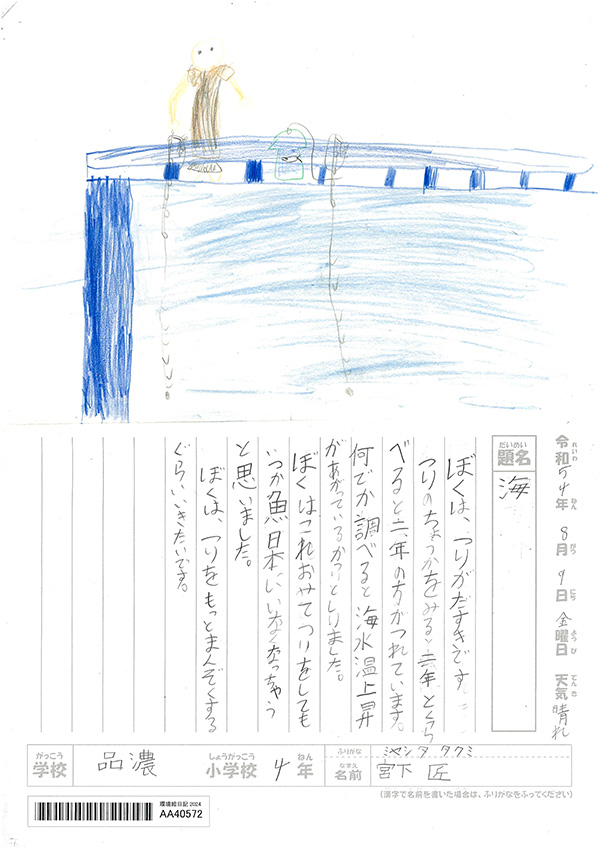 令和54年8月9日金曜日 天気晴れ
れいわ ねん がつ にち ようび てんき
だいめい
題名
海
ぼくは、つりがだすきです。
つりのちょうかをみると二年とくら
べると二、年の方がつれています。
何でか調べると海水温上昇
があがっているかつりとしりました。
ぼくはこれおみてつりをしても
いつか魚日本にいなくなっちゃう
と思いました。
ぼくは、つりをもっとまんぞくする
ぐらいいきたいです。
がっこう しょうがっこう ねん ふりがな ミヤシタ タクミ
学校 品濃 小学校 4年 なまえ 名前 宮下 匠
(漢字で名前を書いた場合は、ふりがなをふってください)
環境絵日記2024
AA40572